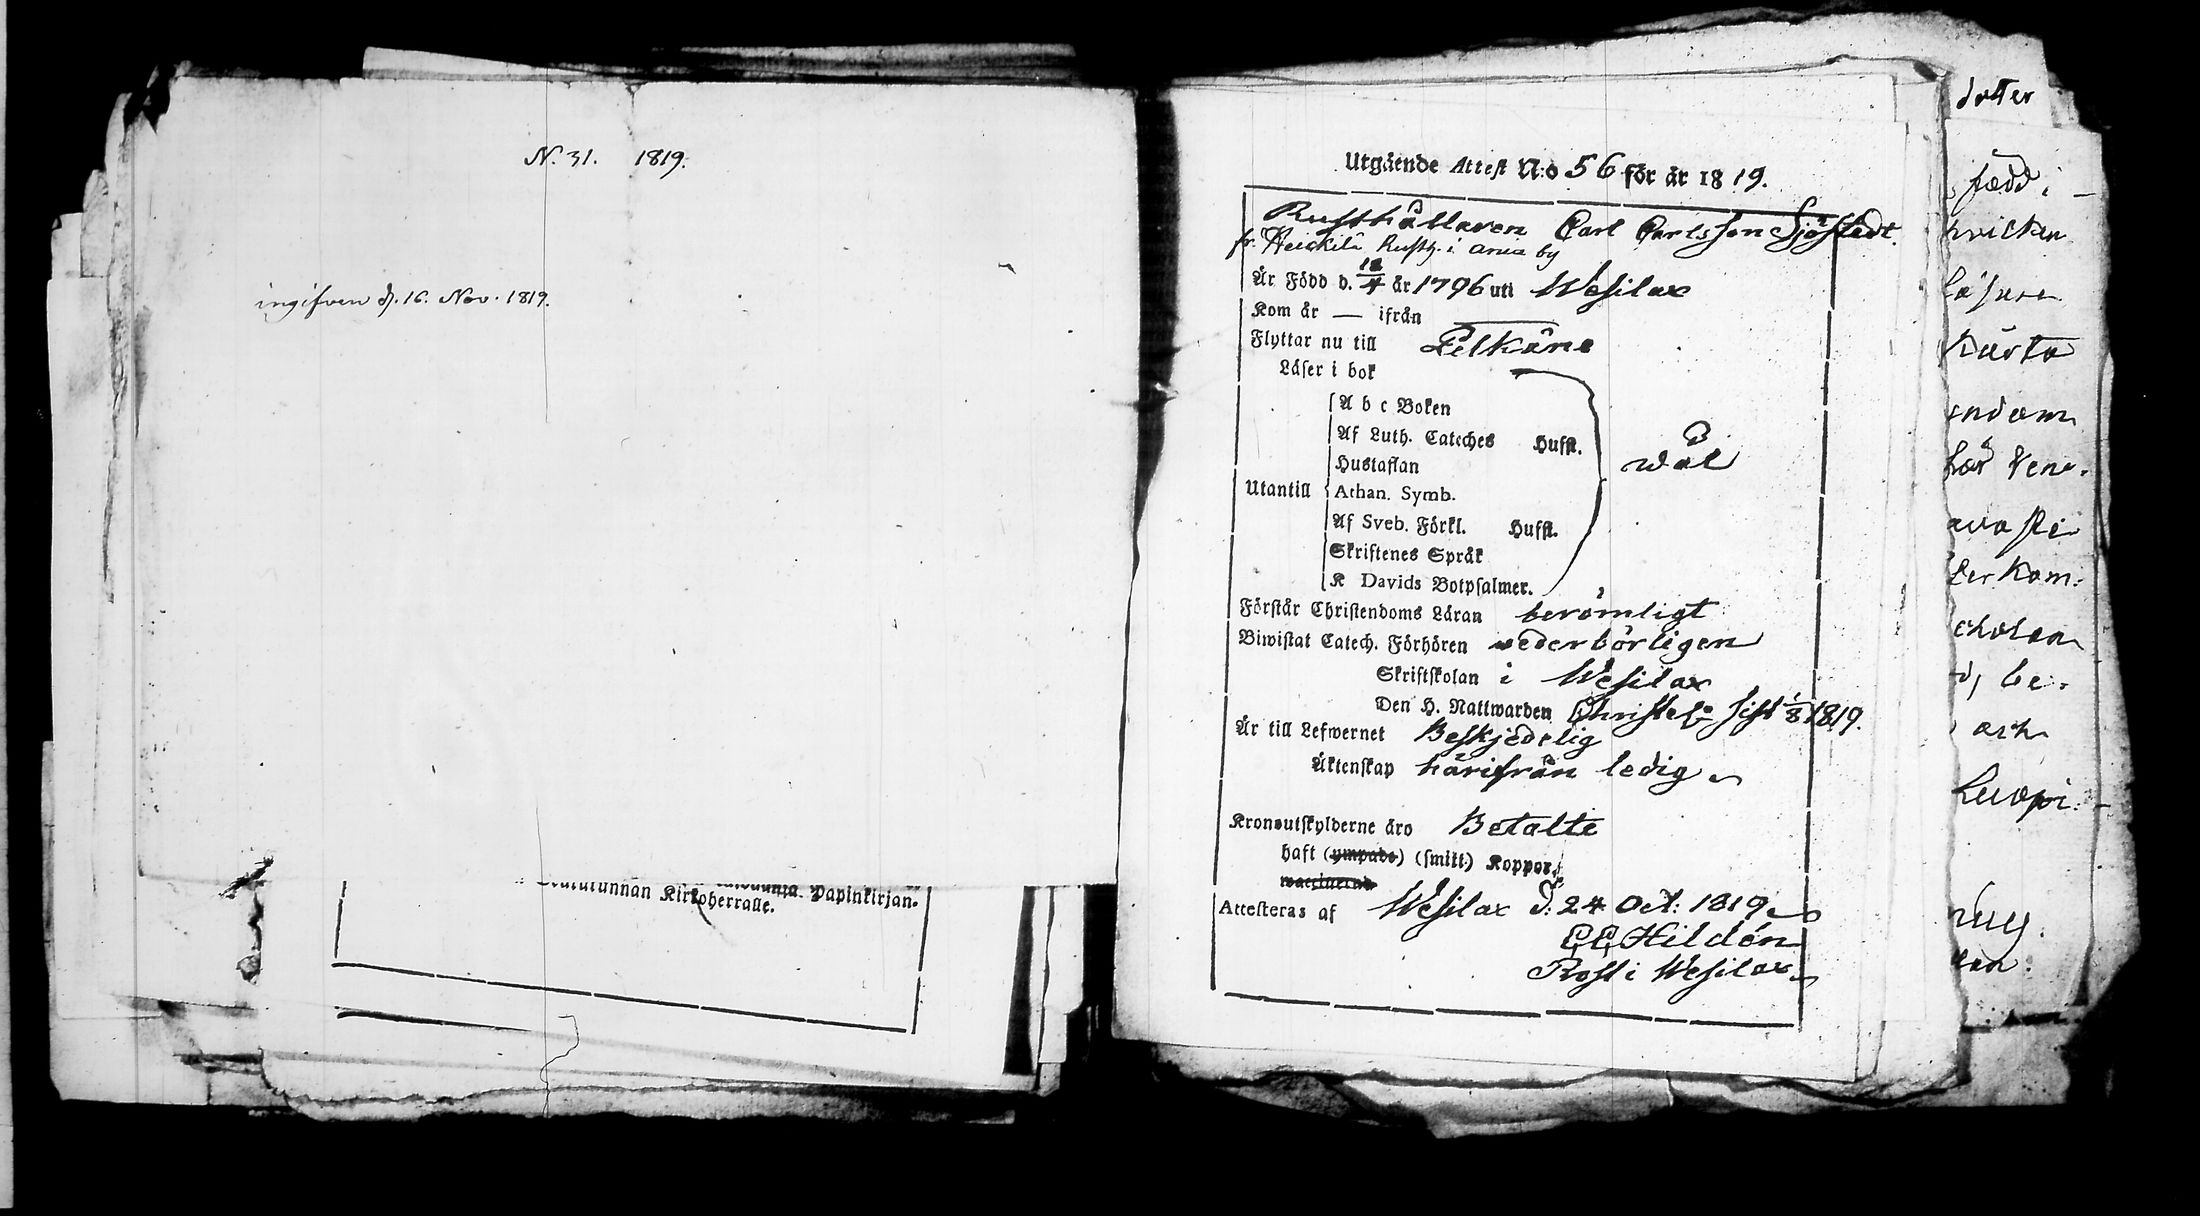 N. 31. 1819.
ingifven d. 16. Nov. 1819.
Kirkoherralle. Papinkirjan-
Utgående Attest N:o 56 för år 1819.
Rusthållaren Carl Carlsson Sjöstedt.
fr. Heickilä Rusth. i Ania by
Är Född d. 18/4 år 1796 uti Wesilax
Kom år — ifrån
Flyttar nu till Pelkäne
Läser i bok
A b c Boken
Af Luth. Cateches Hufst.
Hustaflan
wäl
Utantill Athan. Symb.
Af Sveb. Förkl. Hufst.
Skriftenes Språk
K Davids Botpsalmer.
Förstår Christendoms Läran berömligt
Biwistat Catech. Förhören wederbörligen
Skriftskolan i Wesilax
Den H. Nattwarden Christel. sist 1/8 1819.
Är till Lefwernet Beskjedelig
Äktenskap härifrån ledig
Kronoutskylderne äro Betalte
haft (ympade) (smitt:) Koppor
waccinerad
Attesteras af Wesilax d: 24 Oct: 1819
CC Hildén
Prost i Wesilax
dotter
född i
hvilken
endom
och